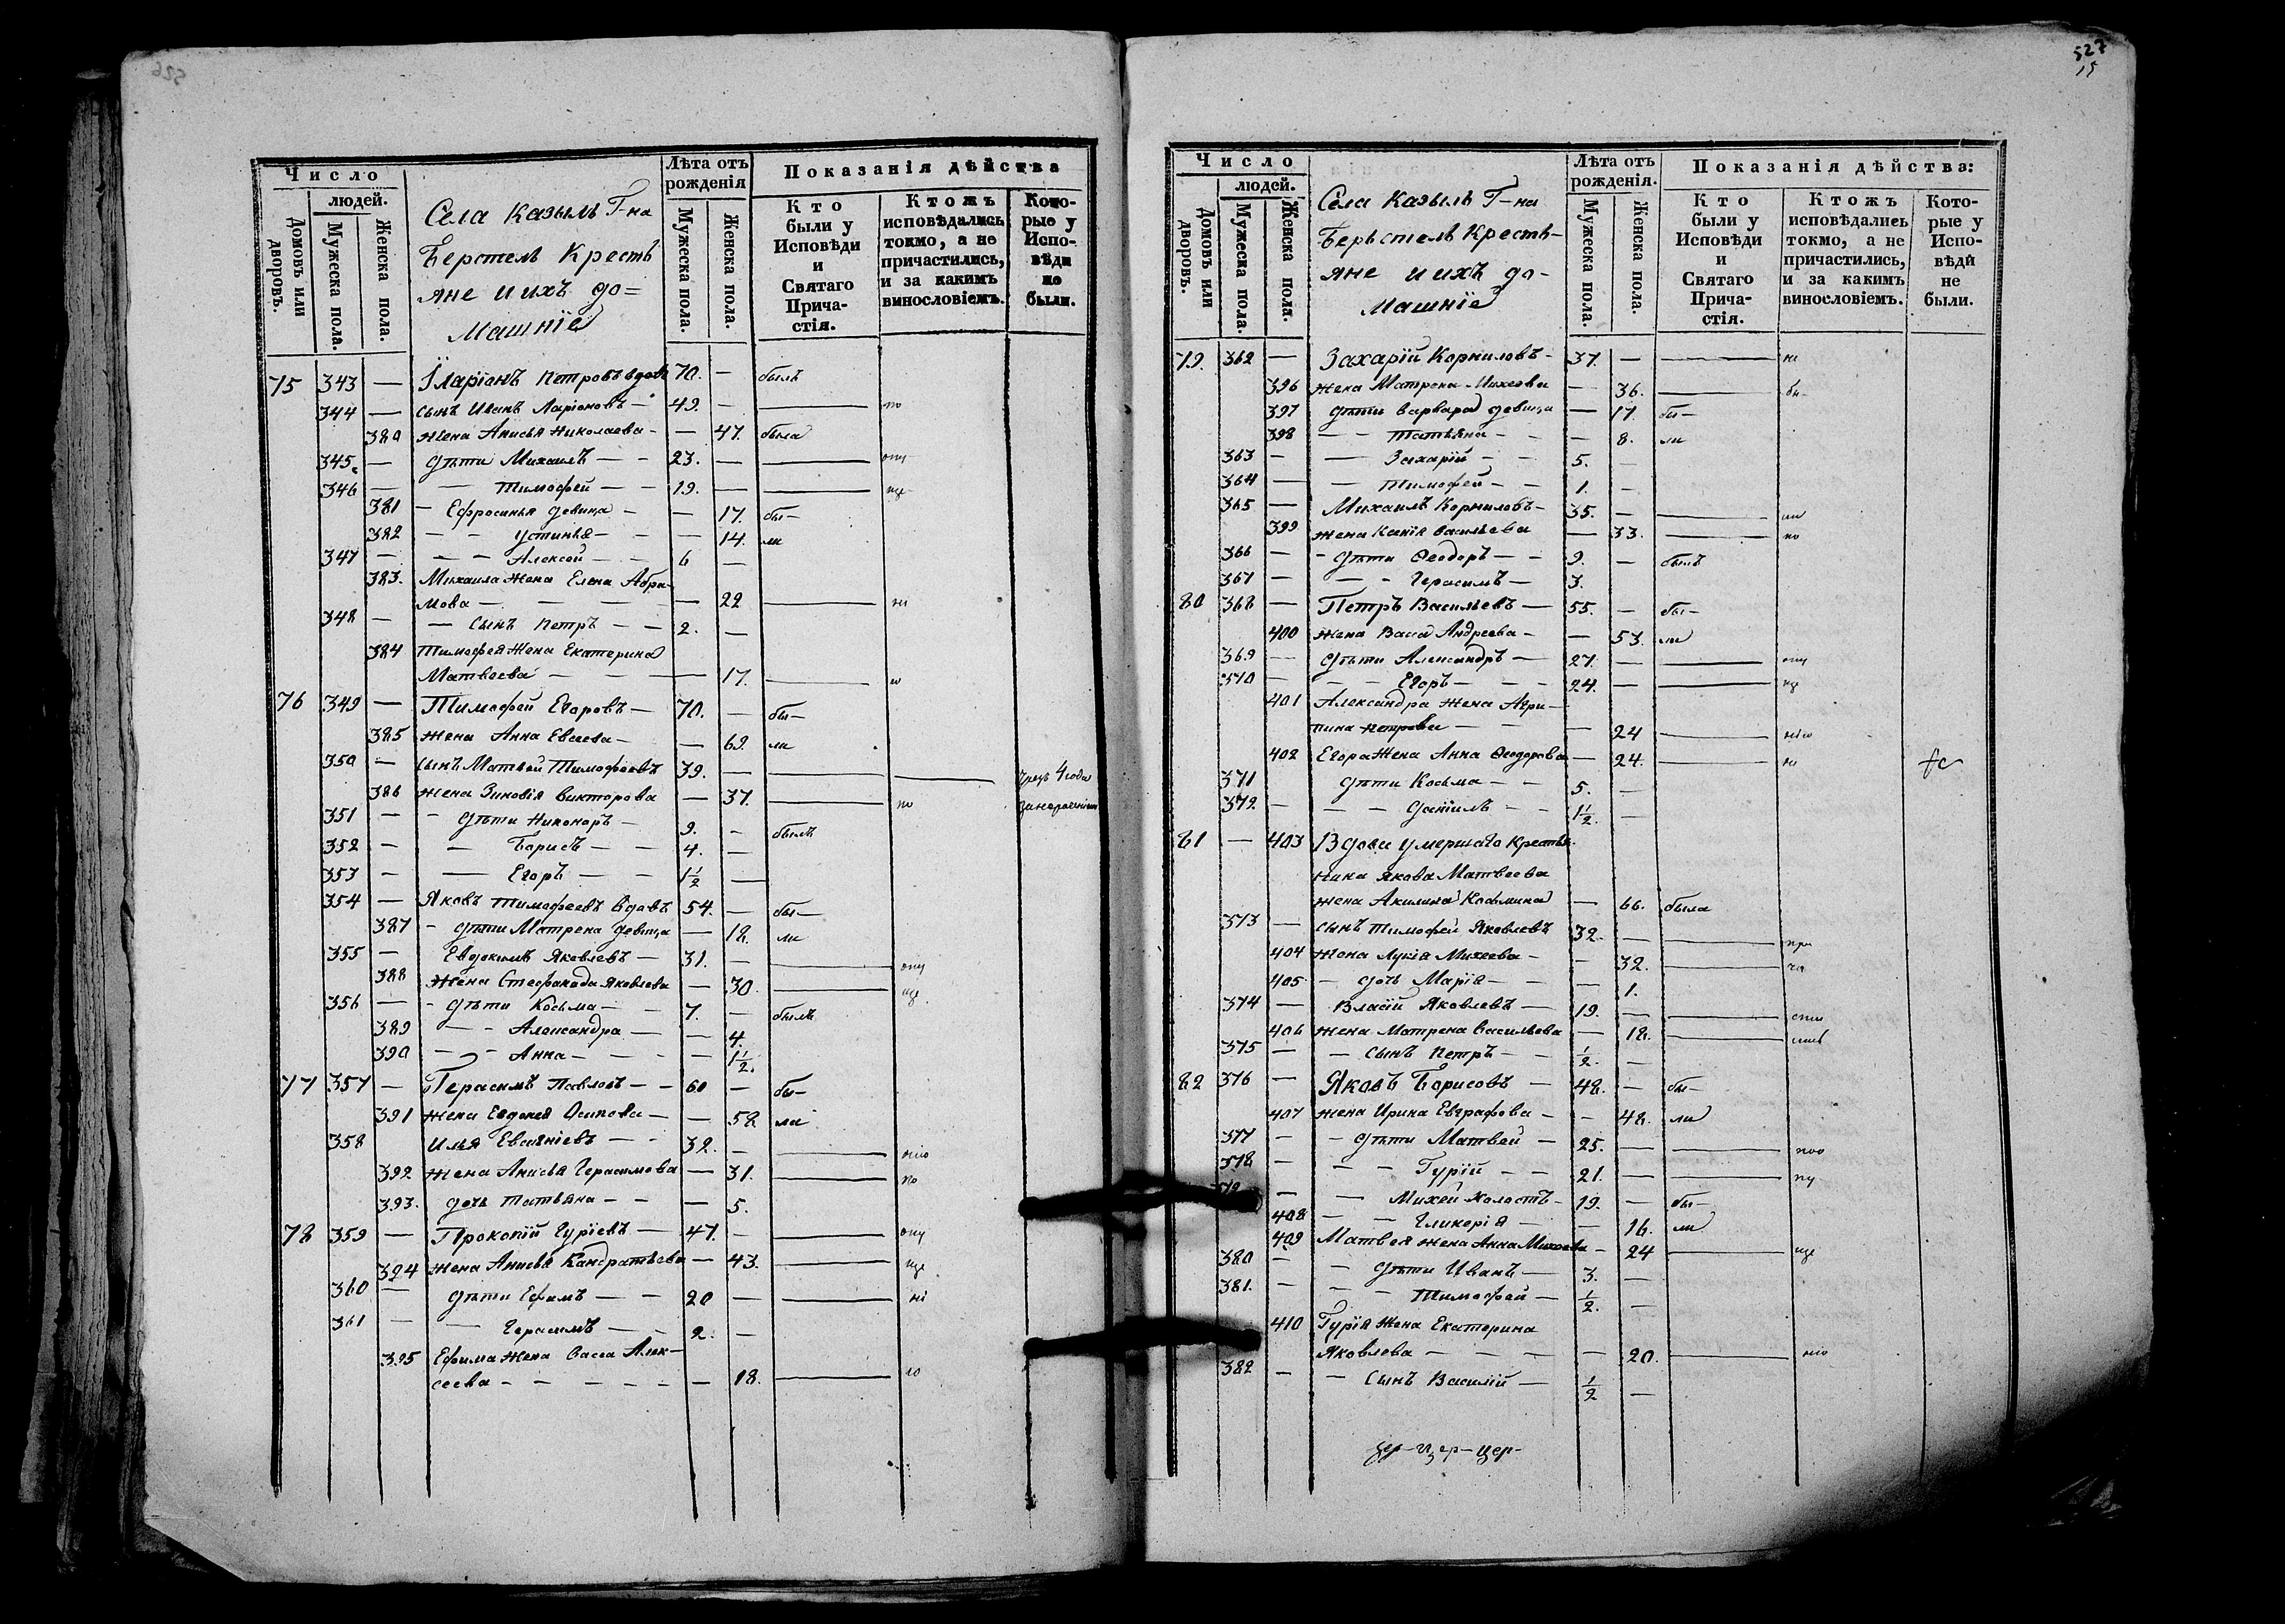 526
Число
людей.
Домовъ или дворовъ.
Мужеска пола.
Женска пола.
Села Казыль Г-на
Берстель Кресть
яне и ихъ до=
машніе
Лѣта отъ
рожденія
Мужеска пола.
Женска пола.
Показанія дѣйства
Кто
были у
Исповѣди
и
Святаго
Прича-
стія.
Ктожъ
исповѣдались
токмо, а не
причастились,
и за какимъ
винословіемъ.
Кото-
рые у
Испо-
вѣди
не
были.
75 343 — Іларіонъ Петровъ вдовъ 70. — былъ
344 — сынъ Иванъ Ларіоновъ — 49. — — по
380 жена Анисья Николаева — — 47. была
345. — дѣти Михаилъ — — 23. — — опу
346 — — Тимофей — — 19. — — ще
381 — Ефросинья девица — — 17. бы—
382 — — Устинья — — — 14. ли
347 — — — Алексей — — 6 —
383. Михаила жена Елена Абра-
мова — — — — — 22 — ні
348 — — сынъ Петръ — — 2. —
384 Тимофея жена Екатерина
Матвеева — — — 17. — ю
76 349 — Тимофей Егоровъ — 70. — бы—
385 жена Анна Евсеева — — 69. ли
350 — сынъ Матвей Тимофеевъ 39. — — — чрезъ 4 года
386 жена Зиновія Викторова — 37. — по
351 — — дѣти Никоноръ — 9. — былъ
352 — — Борисъ — — 4. —
353 — — Егоръ — — 1½ —
354 — Яковъ Тимофеевъ вдовъ 54. — бы—
387 — дѣти Матрена девица — 18. ли
355 — Евдокимъ Яковлевъ — 31. — — опу
388 жена Стефанида Яковлева — 30. — ще
356 — — дѣти Косьма — — 7. — былъ
389 — — Александра — — 4.
390 — — Анна — — — 1½.
77 357 — Герасимъ Павловъ — — 60 — бы—
391 жена Евдокея Осипова — — 58 ли
358 Илья Евсевіевъ — — 32. — — нію
392 жена Анисья Герасимова — 31. — по
393. дочь Татьяна — — — 5.
78 359 — Прокопій Гуріевъ — 47. — — опу
394 жена Анисья Кандратьева — 43. — ще
360 — дѣти Ефимъ — — 20 — — ні
361 — — Герасимъ — — 2. —
395 Ефима жена Васса Алек-
сеева — — — — — — 18. — ю
527
15
Число
людей.
Домовъ или дворовъ.
Мужеска пола.
Женска пола.
Села Казыль Г-на
Берьстель Кресть-
яне и ихъ до-
машніе
Лѣта отъ
рожденія.
Мужеска пола.
Женска пола.
Показанія дѣйства:
Кто
были у
Исповѣди
и
Святаго
Прича-
стія.
Ктожъ
исповѣдались
токмо, а не
причастились,
и за какимъ
винословіемъ.
Кото-
рые у
Испо-
вѣди
не
были.
79. 362 — Захарій Корниловъ — 37. — — не
396 жена Матрена Михеева — 36. — бы-
397 дѣти Варвара девица — 17. бы—
398 — — Татьяна — — — 8. ли
363 — — Захарій — — 5. —
364 — — Тимофей — — 1. —
365 — Михаилъ Корниловъ — 35. —
399 жена Ксенія Васильева — 33. — по
366 — — дѣти Феодоръ — — 9. — былъ
367 — — — Герасимъ — 3.
80 368 — Петръ Васильевъ — 55. — бы—
400 жена Васса Андреева — — 53. ли
369 — дѣти Александръ — 27. — — опу
370 — — — Егоръ — — — 24. — — ще
401 Александра жена Агри—
пина Петрова — — — 24 — нію
402 Егора жена Анна Феодорова — 24. —
371 дѣти Косьма — — 5. —
372 — — — Данилъ — — 1½. —
81 — 403 Вдова умершаго крестья-
нина Якова Матвеева
жена Акилина Косьмина — 66. была
373 — сынъ Тимофей Яковлевъ 32. — — при
404 жена Лукія Михеева — — 32. — ча
405 — дочь Марія — — — 1.
374 — Власій Яковлевъ — 19. — — сти
406 жена Матрена Васильева — 18. —
375 — — сынъ Петръ — — ½. —
82 376 — Яковъ Борисовъ — 48. — бы—
407 жена Ирина Евграфова — — 48. ли
377 — — дѣти Матвей — 25. — —
378 — — — Гурій — — 21. — —
— — Михей холостъ — 19. — бы—
408 — — Гликерія — — 16. ли
409 Матвея жена Анна Михеева — 24 — ще
380 — — дѣти Иванъ — 3. —
381. — — — Тимофей — ½. —
410 Гурія жена Екатерина
Яковлева — — — — 20. — нію
382 — — сынъ Василій — ½ —